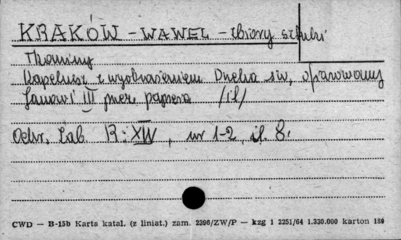 KRAKÓW - WAWEL - zbiory sztuki
Tkaniny
Kapelusz z wyobrażeniem Ducha św., ofiarowany
Janowi III przez papieża /il/
Ochr. Zab. R: XIV, nr 1-2, il. 8.
CWD — B-15b Karta katal. (z liniat.) zam. 2306/ZW/P — kzg 1 2251/64 1.330.000 karton 180